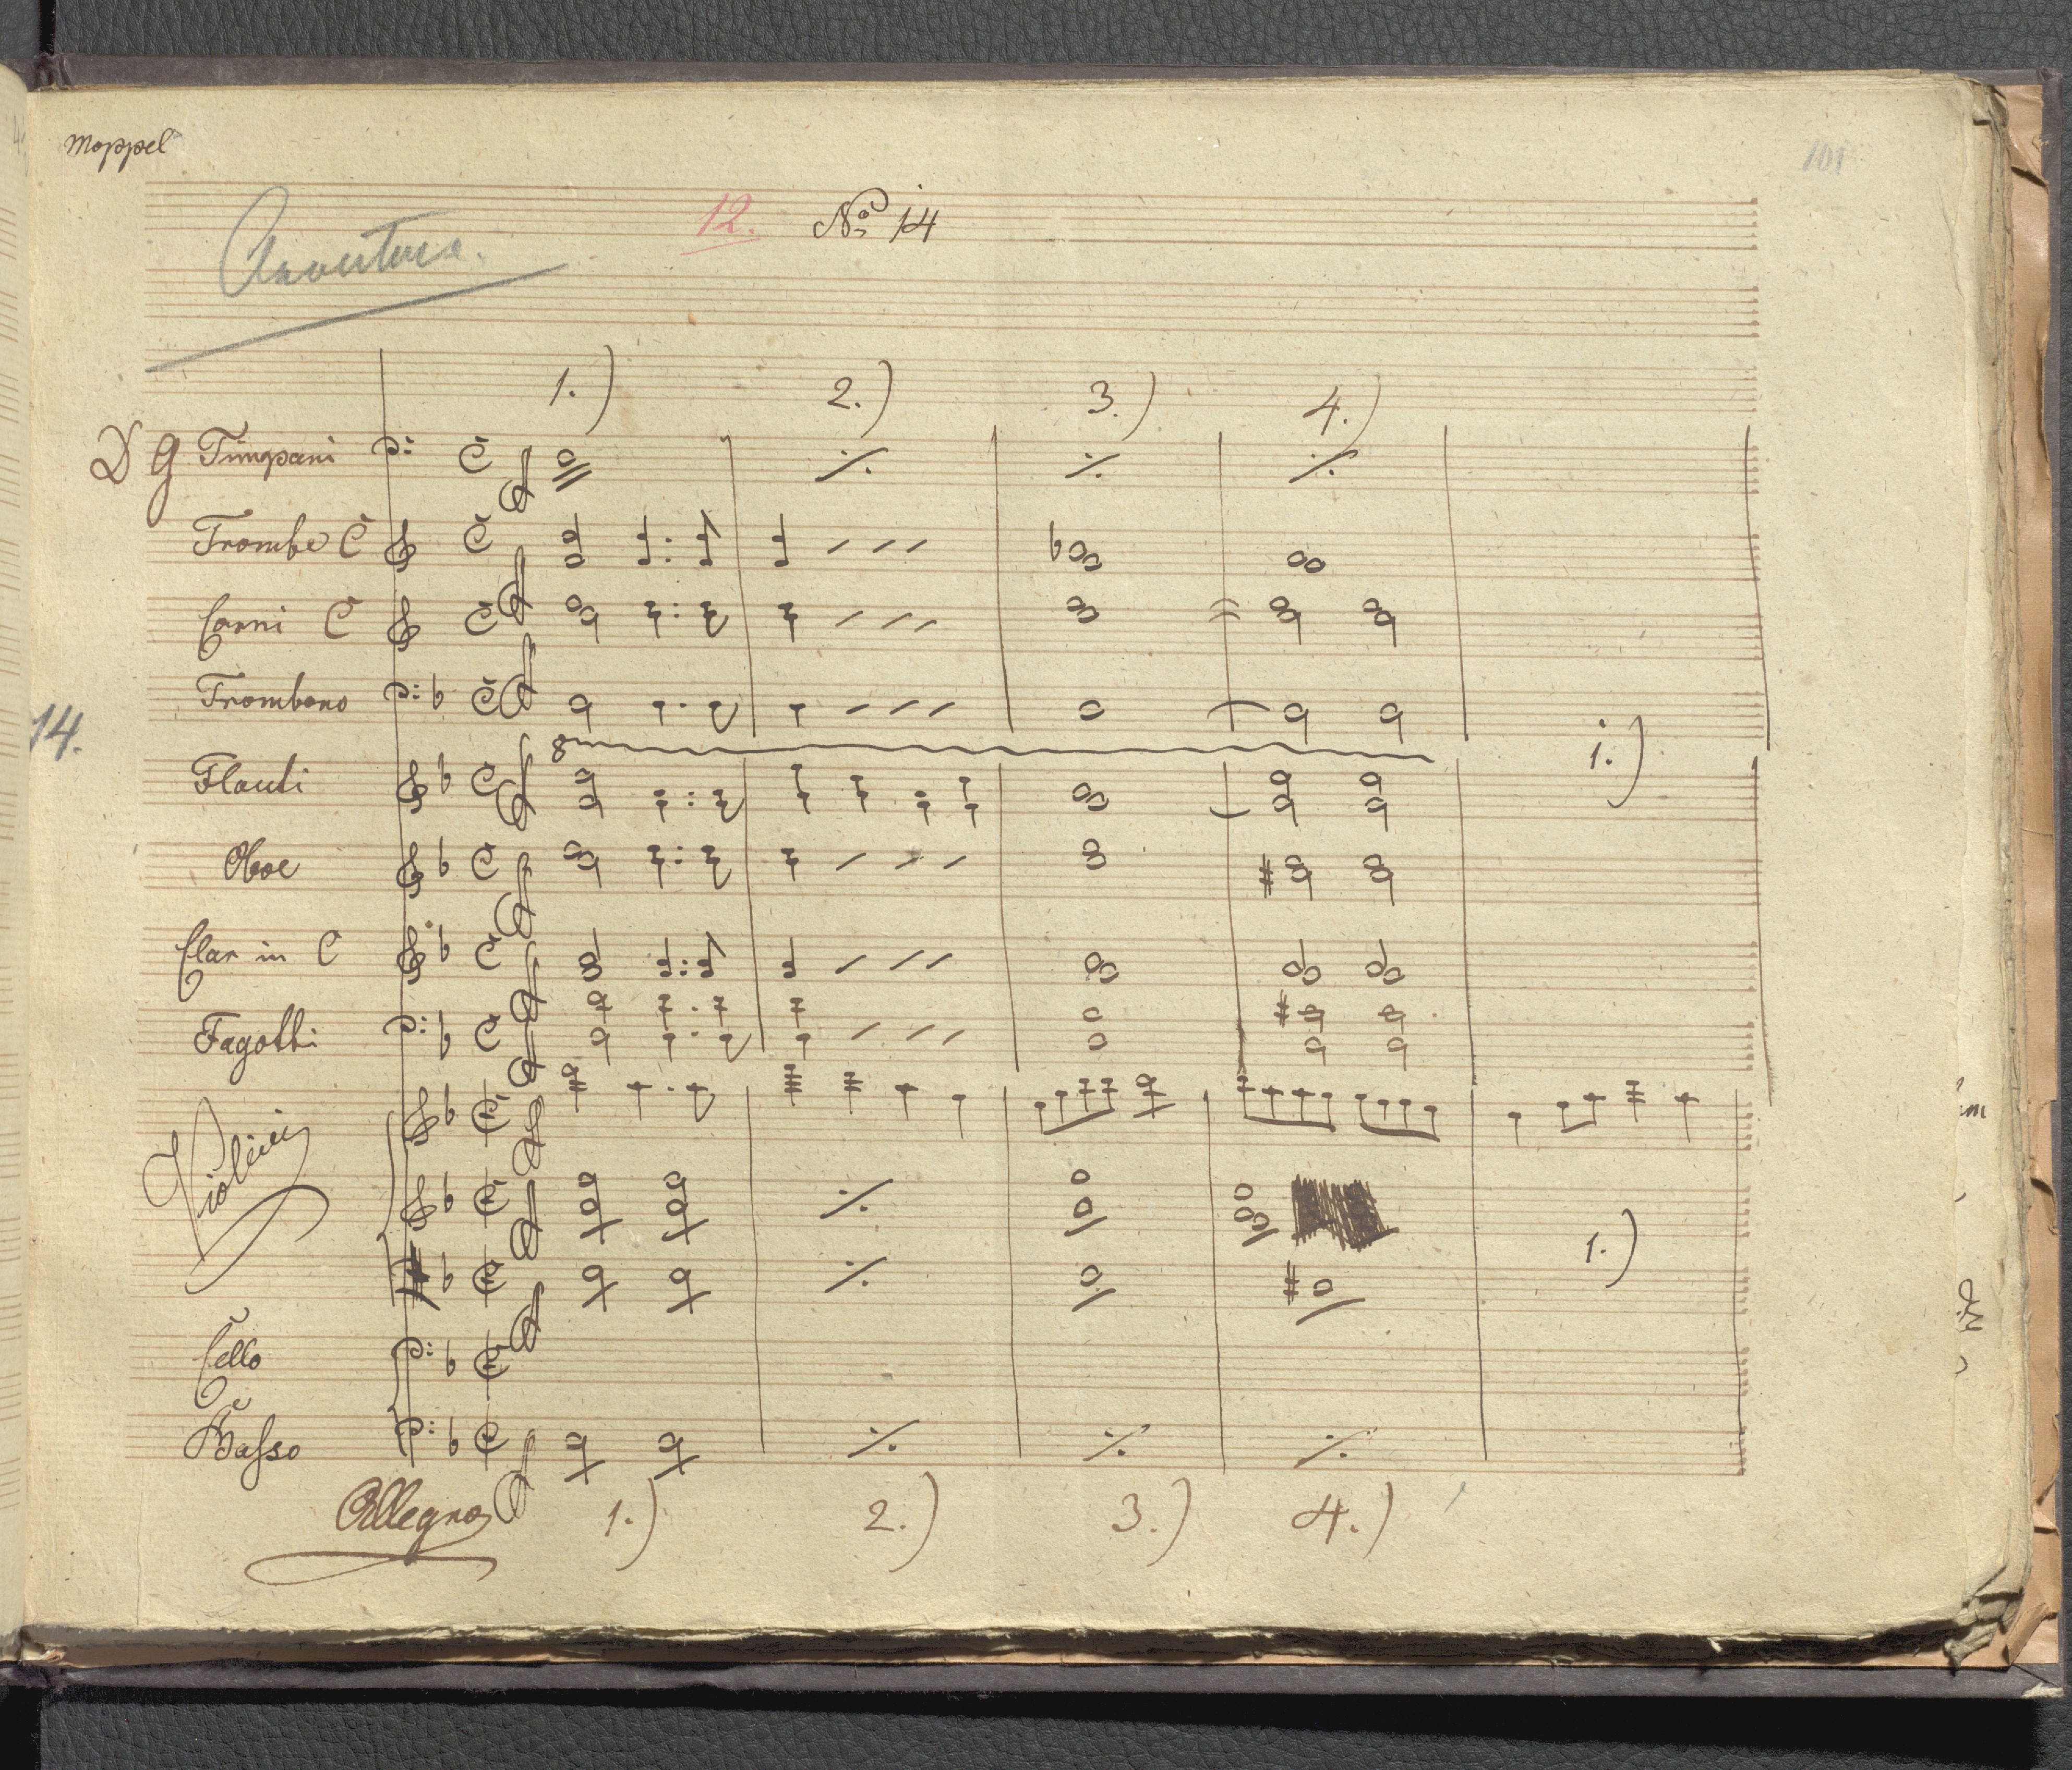 Moppel
101
12. No 14
Ouvertura.
1.) 2.) 3.) 4.)
D G Timpani
Trombe C
Corni C
Trombono
14.
8
Flauti
1.)
Oboe
Clar in C
Fagotti
Violini
1.)
Cello
Basso
Allegro 1.) 2.) 3.) 4.)